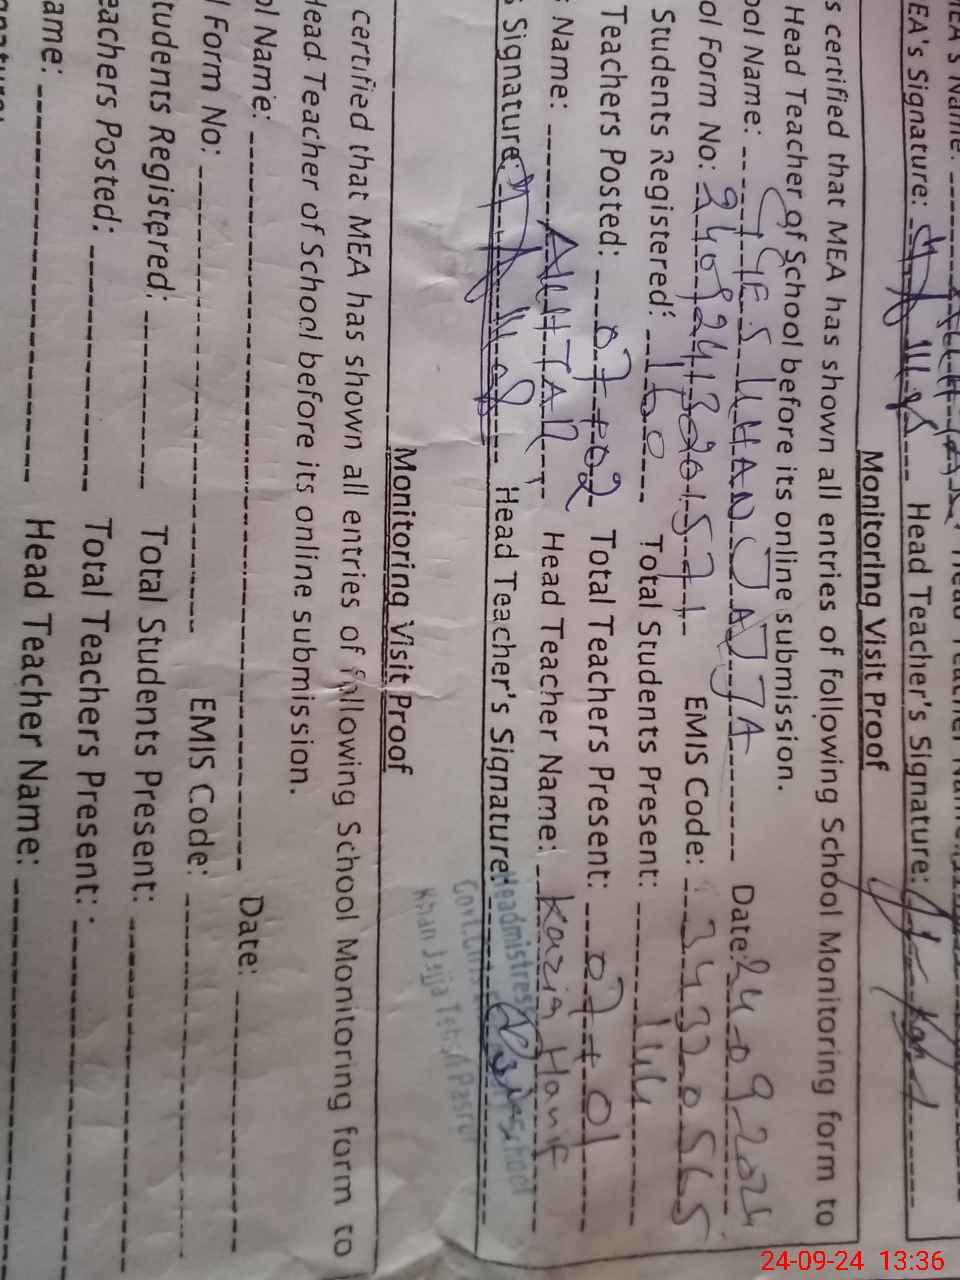 EA's Name:
EA's Signature: Head Teacher's Signature:
Monitoring Visit Proof
s certified that MEA has shown all entries of following School Monitoring form to
Head Teacher of School before its online submission.
ool Name: GGES KHAN JAJJA Date: 24-09-2024
ol Form No: 240924132015771 EMIS Code: 34320565
Students Registered: 160 Total Students Present: 144
Teachers Posted: 07+02 Total Teachers Present: 07+01
s Name: AKHTAR Head Teacher Name: Hanif
s Signature: Head Teacher's Signature:
Headmistress
Govt. Girls School
Khan Jajja Tehsil Pasrur
Monitoring Visit Proof
certified that MEA has shown all entries of following School Monitoring form to
Head Teacher of School before its online submission.
ol Name: Date:
l Form No: EMIS Code:
tudents Registered: Total Students Present:
eachers Posted: Total Teachers Present:
ame: Head Teacher Name:
24-09-24 13:36